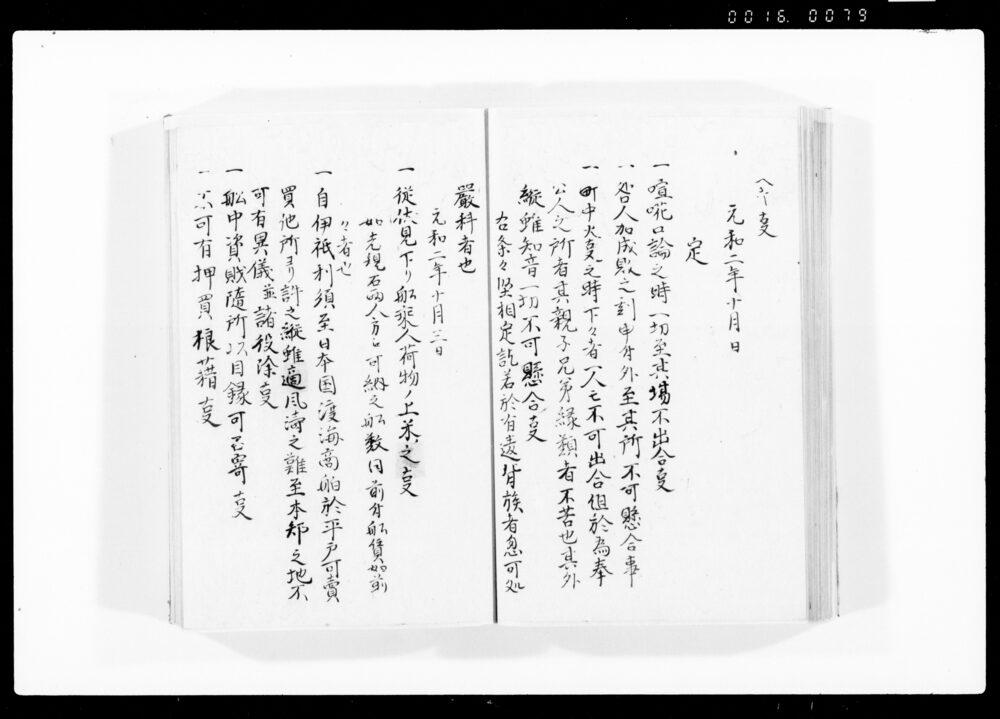 0016. 0079
へき叓
元和二年十月日
定
一 喧嘩口論之時一切至其場不出合叓
一 咎人加成敗之刻申付外至其所不可懸合事
一 町中火叓之時下々者一人モ不可出合但於為奉
公人之所者其親子兄弟縁類者不苦也其外
縦雖知音一切不可懸合叓
右条々堅相定訖若於有違背族者忽可処
嚴科者也
元和二年十月三日
一 従伏見下り船乗人荷物ノ上米之叓
如先規石両人方ゟ可納之船数日前付船賃如前
々者也
一 自伊祇利須至日本国渡海商舶於平戸可賣
買他所ヨリ許之縦雖適風濤之難至本邦之地不
可有異儀並諸役除叓
一 舩中資財隨所以目録可召寄叓
一 不可有押買狼藉叓